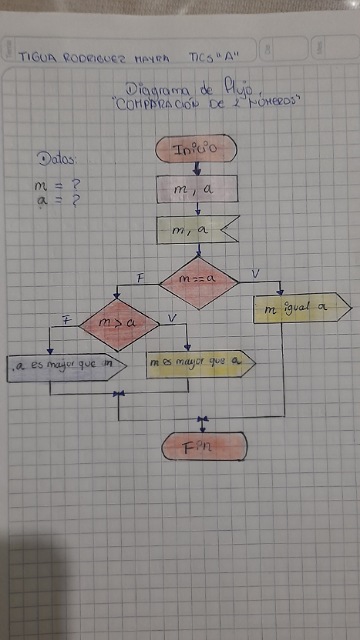 TIGUA RODRIGUEZ MAYRA TICS "A"
Diagrama de Flujo
"COMPARACIÓN DE 2 NÚMEROS"
Datos:
m = ?
a = ?
Inicio
m, a
m, a
m==a
F
V
m igual a
m>a
F
V
a es mayor que m
m es mayor que a
Fin